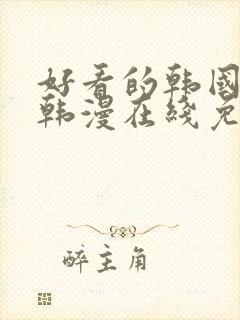 好看的韩国
韩漫在线免
醉主角